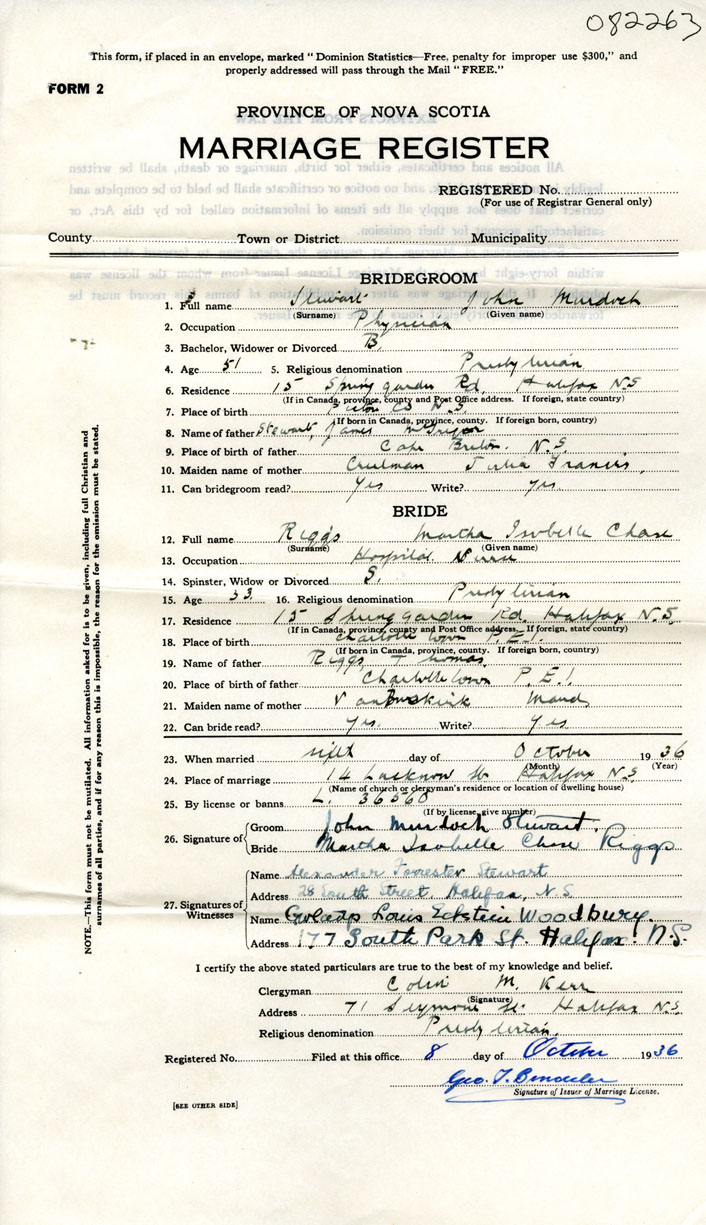 082263
This form, if placed in an envelope, marked "Dominion Statistics—Free, penalty for improper use $300," and
properly addressed will pass through the Mail "FREE."
FORM 2
PROVINCE OF NOVA SCOTIA
MARRIAGE REGISTER
REGISTERED No.
(For use of Registrar General only)
County Town or District Municipality
BRIDEGROOM
1. Full name Stewart John Murdoch
(Surname) (Given name)
2. Occupation Physician
3. Bachelor, Widower or Divorced B.
4. Age 51 5. Religious denomination Presbyterian
6. Residence 15 Spring garden Rd Halifax N.S
(If in Canada, province, county and Post Office address. If foreign, state country)
7. Place of birth Pictou Co N.S.
(If born in Canada, province, county. If foreign born, country)
8. Name of father Stewart, James McGregor
9. Place of birth of father Cape Breton. N.S.
10. Maiden name of mother Julia Francis
11. Can bridegroom read? Yes Write? yes.
BRIDE
12. Full name Riggs Martha Isobelle Chase
(Surname) (Given name)
13. Occupation Hospital Nurse
14. Spinster, Widow or Divorced S.
15. Age 33. 16. Religious denomination Presbyterian
17. Residence 15 Spring garden Rd. Halifax N.S.
(If in Canada, province, county and Post Office address. If foreign, state country)
18. Place of birth Charlotte town P.E.I.
(If born in Canada, province, county. If foreign born, country)
19. Name of father Riggs Thomas.
20. Place of birth of father Charlottetown P.E.I.
21. Maiden name of mother VanBuskirk Maud
22. Can bride read? yes. Write? yes
23. When married day of October 1936
(Month) (Year)
24. Place of marriage 14 Lucknow St Halifax N.S
(Name of church or clergyman's residence or location of dwelling house)
25. By license or banns L. 36560
(If by license, give number)
26. Signature of
Groom John Murdoch Stewart.
Bride Martha Isobelle Chase Riggs
27. Signatures of Witnesses
Name Alexander Forrester Stewart
Address 28 South Street, Halifax, N.S
Name Louis Eckstein Woodbury
Address 177 South Park St. Halifax N.S.
I certify the above stated particulars are true to the best of my knowledge and belief.
Clergyman Colin M. Kerr
(Signature)
Address 71 Seymour St. Halifax N.S.
Religious denomination Presbyterian
Registered No. Filed at this office 8 day of October 1936
Geo. T.
Signature of Issuer of Marriage License.
[SEE OTHER SIDE]
NOTE.—This form must not be mutilated. All information asked for is to be given, including full Christian and
surnames of all parties, and if for any reason this is impossible, the reason for the omission must be stated.